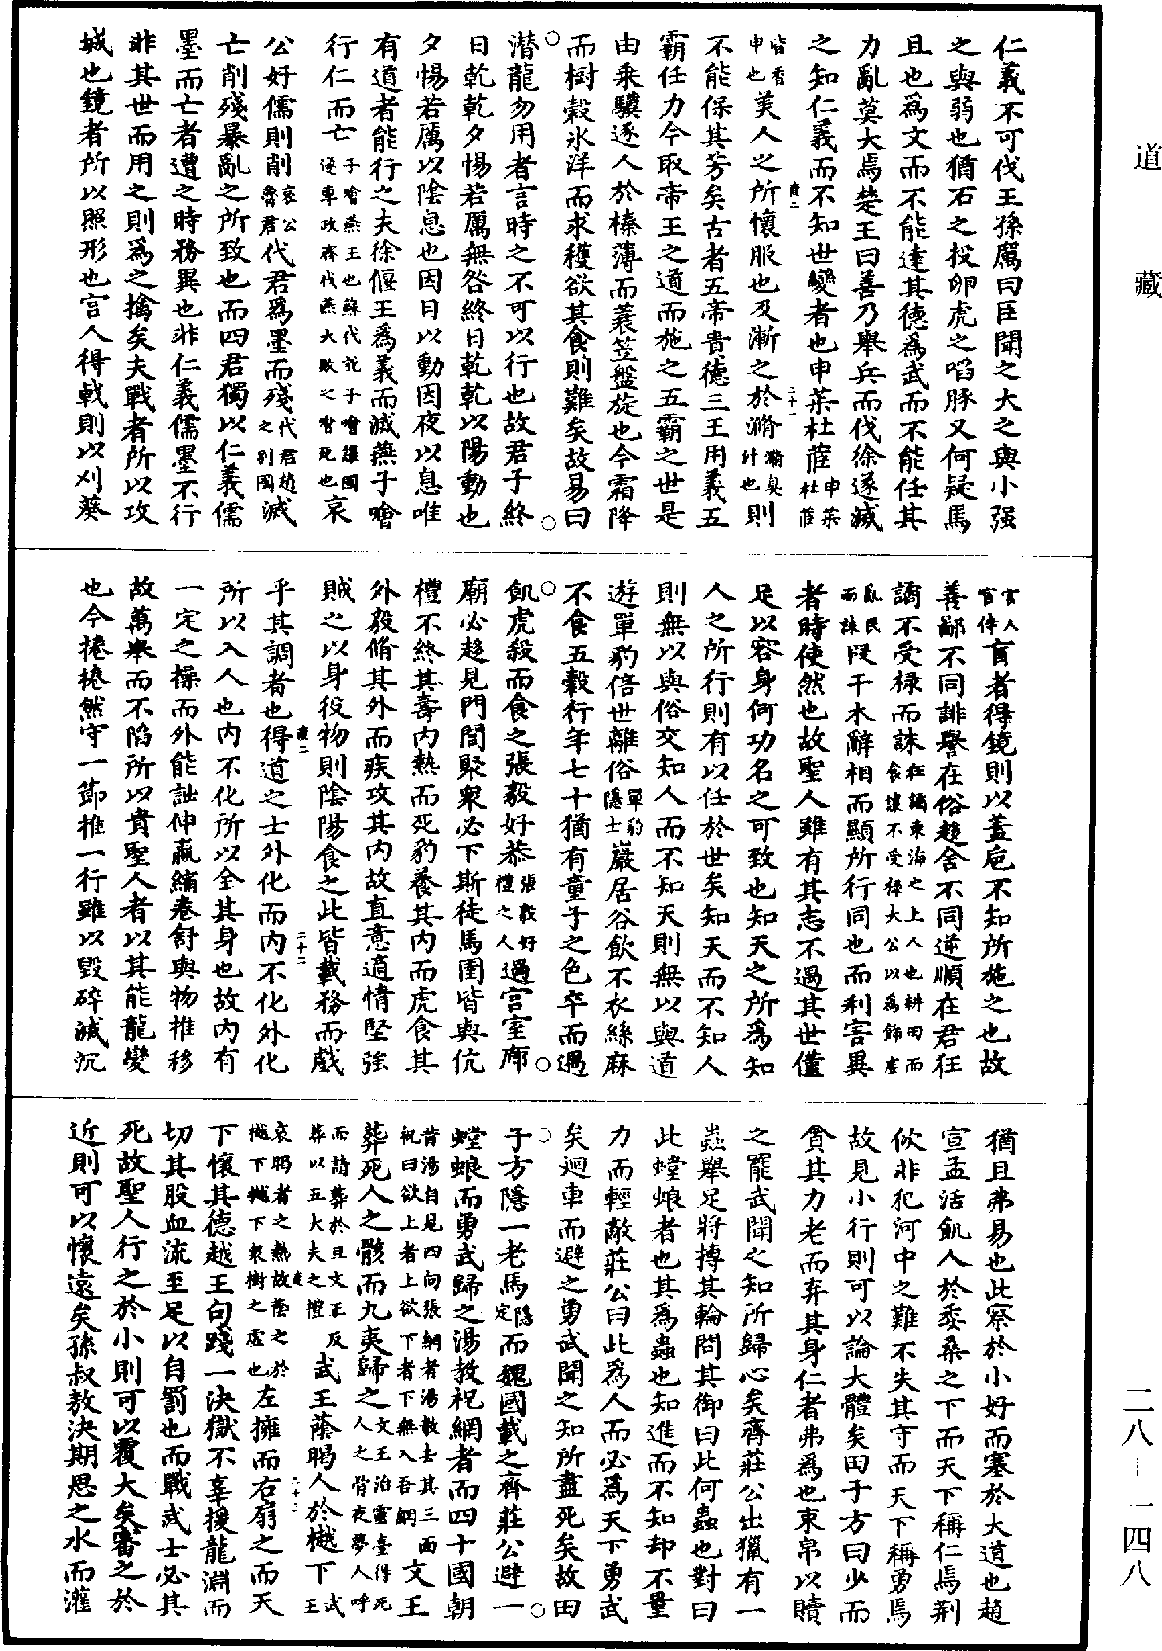 道藏
仁義不可伐王孫厲曰臣聞之大之與小强
之與弱也猶石之投卵虎之啗豚又何疑焉
且也爲文而不能達其德爲武而不能任其
力亂莫大焉楚王曰善乃舉兵而伐徐遂滅
之知仁義而不知世變者也申菽杜茝申菽杜茝
皆香申也美人之所懷服也及漸之於滫滫臭汁也則
不能保其芳矣古者五帝貴德三王用義五
霸任力今取帝王之道而施之五霸之世是
由乘驥逐人於榛薄而蓑笠盤旋也今霜降
而樹穀冰泮而求穫欲其食則難矣故易曰
潜龍勿用者言時之不可以行也故君子終
日乾乾夕惕若厲無咎終日乾乾以陽動也
夕惕若厲以陰息也因日以動因夜以息唯
有道者能行之夫徐偃王爲義而滅燕子噲
行仁而亡子噲燕王也蘇代說子噲讓國遂專政齊伐燕大敗之噲死也哀
公好儒則削哀公魯君代君爲墨而殘代君趙之別國滅
亡削殘暴亂之所致也而四君獨以仁義儒
墨而亡者遭之時務異也非仁義儒墨不行
非其世而用之則爲之擒矣夫戰者所以攻
城也鏡者所以照形也宫人得戟則以刈葵
宫人宦侍盲者得鏡則以蓋巵不知所施之也故
善鄙不同誹譽在俗趍舍不同逆順在君狂
譎不受禄而誅狂譎東海之上人也耕田而食讓不受禄太公以爲飾虚
亂民而誅段干木辭相而顯所行同也而利害異
者時使然也故聖人雖有其志不遇其世僅
足以容身何功名之可致也知天之所爲知
人之所行則有以任於世矣知天而不知人
則無以與俗交知人而不知天則無以與道
遊單豹倍世離俗單豹隱士巖居谷飲不衣絲麻
不食五穀行年七十猶有童子之色卒而遇
飢虎殺而食之張毅好恭張毅好禮之人過宫室廊
廟必趍見門閭聚衆必下斯徒馬圉皆與伉
禮不終其壽内熱而死豹養其内而虎食其
外毅脩其外而疾攻其内故直意適情堅強
賊之以身役物則陰陽食之此皆載務而戲
乎其調者也得道之士外化而内不化外化
所以入人也内不化所以全其身也故内有
一定之操而外能詘伸贏縮卷舒與物推移
故萬舉而不陷所以貴聖人者以其能龍變
也今捲捲然守一節推一行雖以毁碎滅沉
猶且弗易也此察於小好而塞於大道也趙
宣孟活飢人於委桑之下而天下稱仁焉荆
佽非犯河中之難不失其守而天下稱勇焉
故見小行則可以論大體矣田子方曰少而
貪其力老而弃其身仁者弗爲也束帛以贖
之罷武聞之知所歸心矣齊莊公出獵有一
蟲舉足將搏其輪問其御曰此何蟲也對曰
此螳蜋者也其爲蟲也知進而不知却不量
力而輕敵莊公曰此爲人而必爲天下勇武
矣迴車而避之勇武聞之知所盡死矣故田
子方隱一老馬隱定而魏國載之齊莊公避一
螳蜋而勇武歸之湯教祝網者而四十國朝
昔湯自見四向張網者湯教去其三面祝曰欲上者上欲下者下無入吾網文王
葬死人之骸而九夷歸之文王治靈臺得死人之骨夜夢人呼
而請葬於旦文王反葬以五大夫之禮武王蔭暍人於樾下武王
哀暍者之熱故蔭之於樾下樾下衆樹之虚也左擁而右扇之而天
下懷其德越王句踐一決獄不辜援龍淵而
切其股血流至足以自罰也而戰武士必其
死故聖人行之於小則可以覆大矣審之於
近則可以懷遠矣孫叔敖決期思之水而灌
二八—一四八